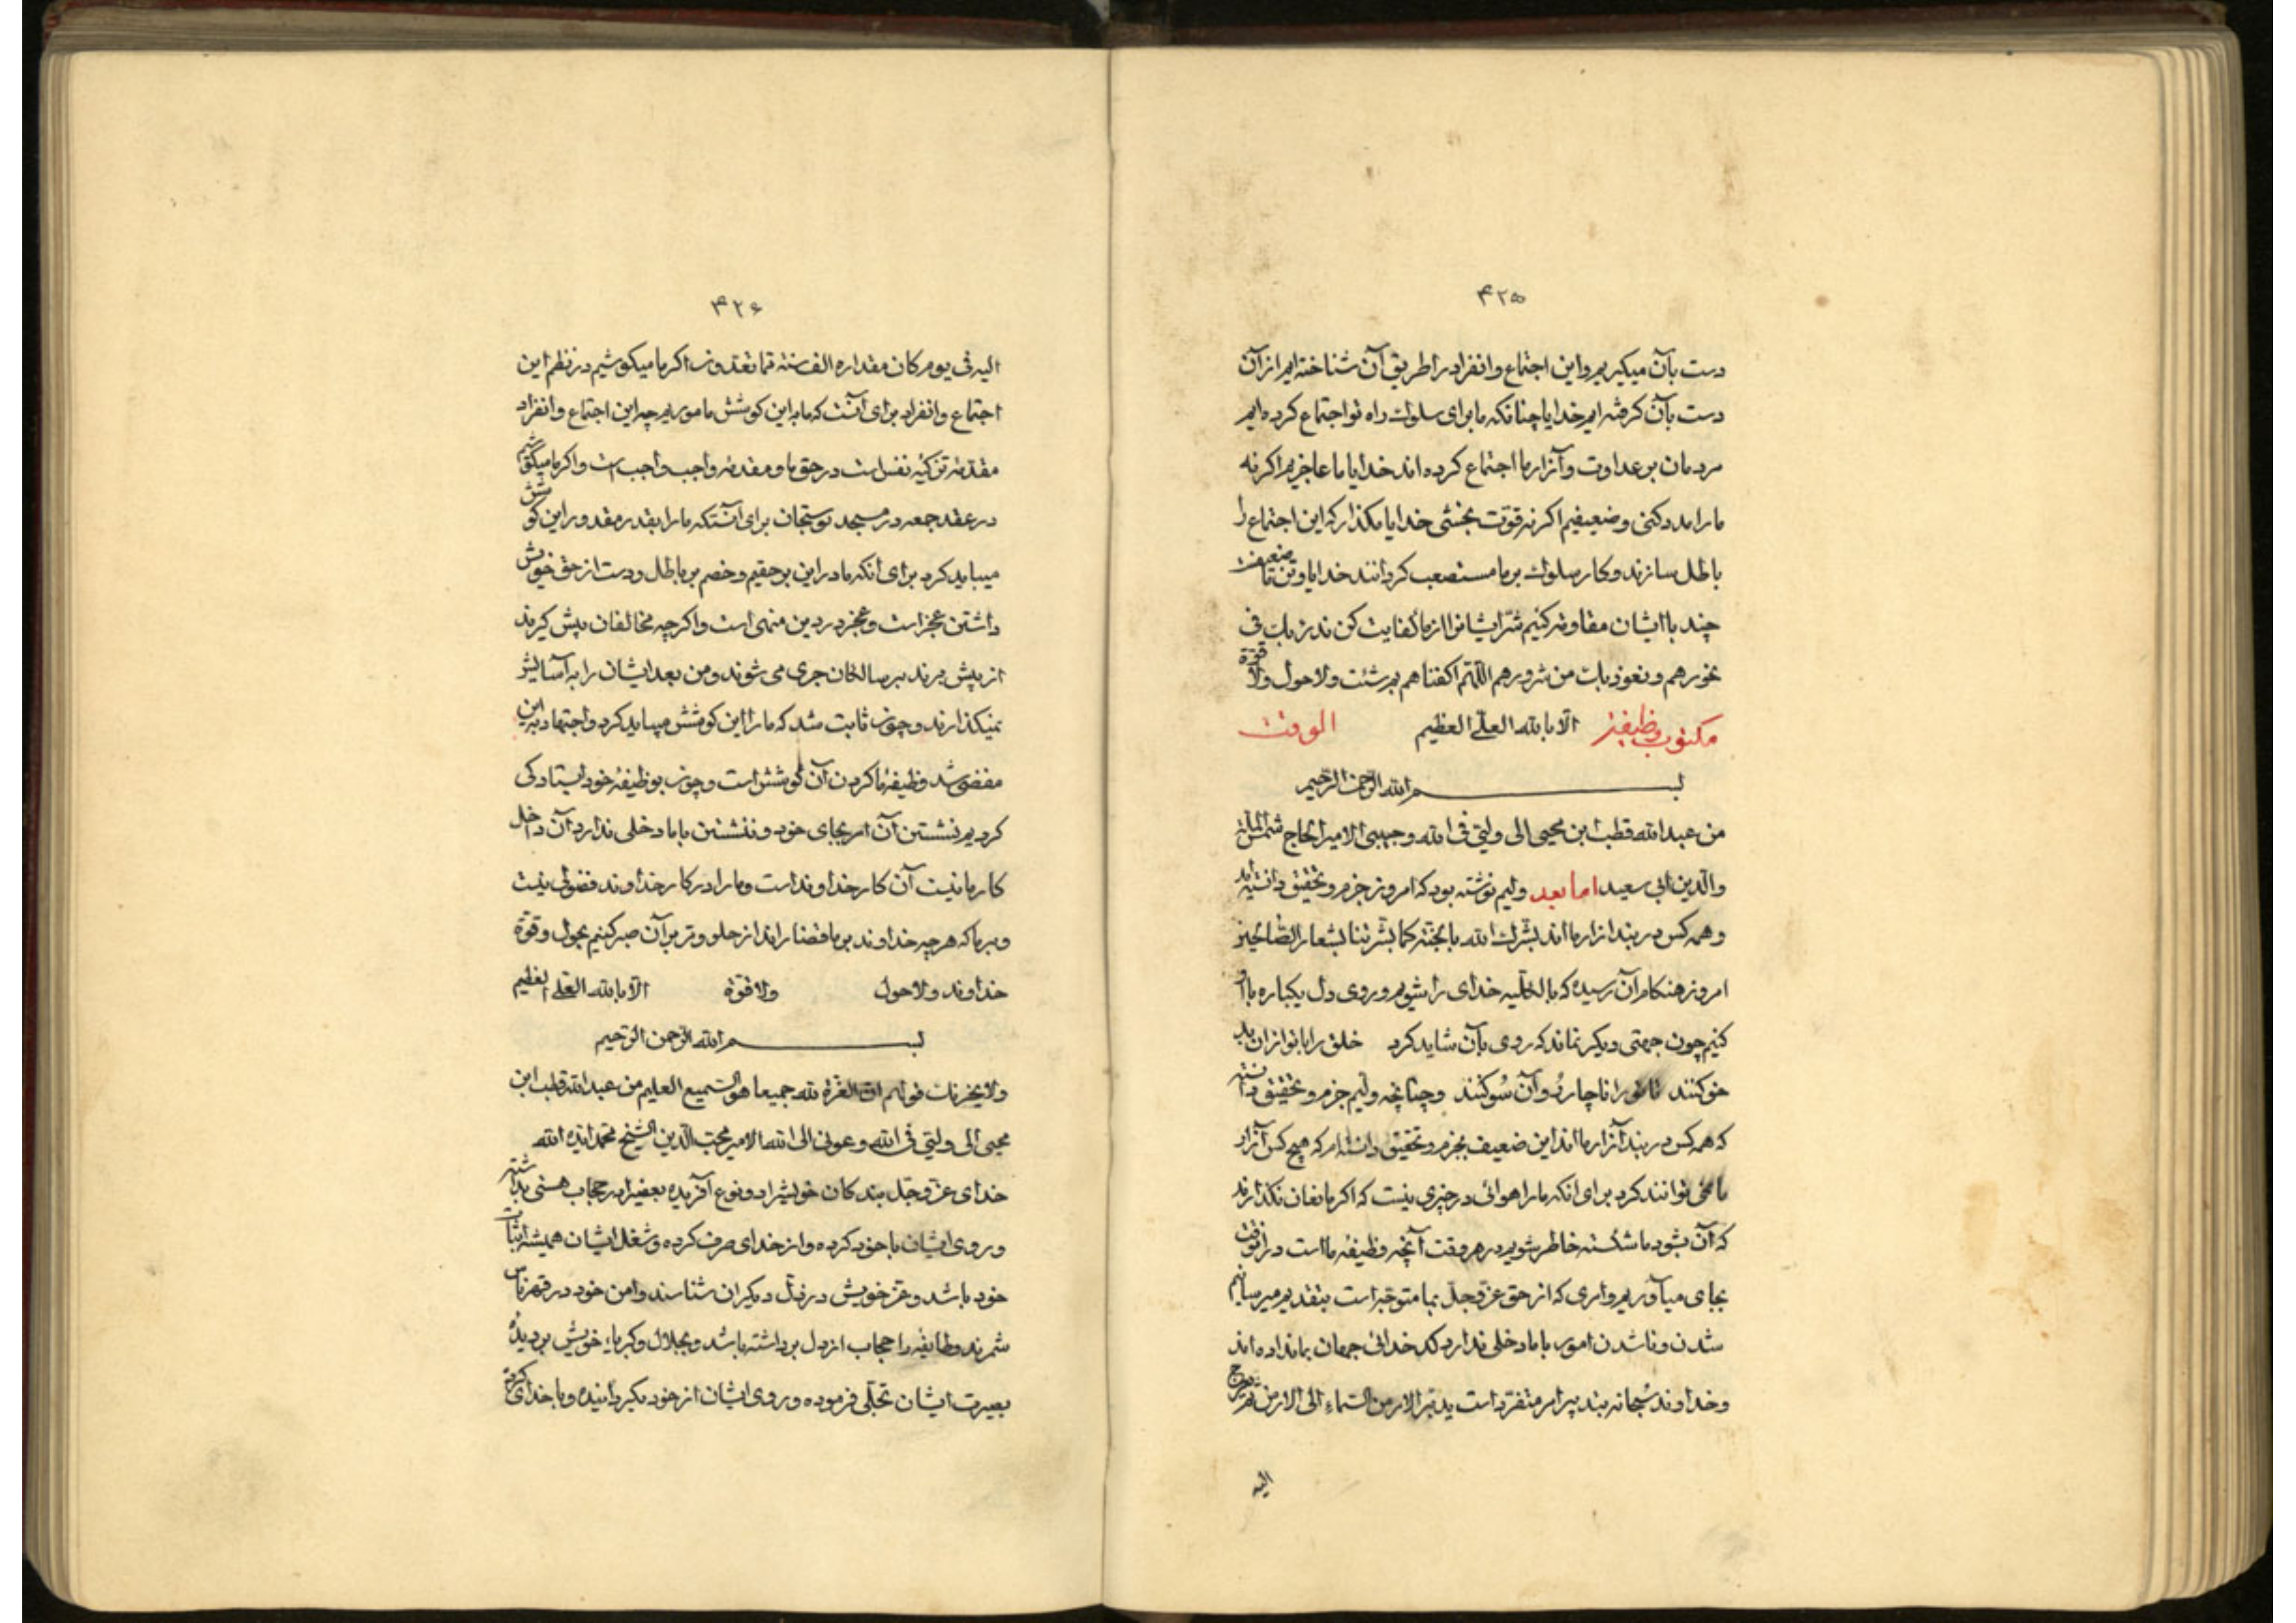 ۴۲۵
دست بآن میکیریم و این اجتماع و انفراد را طریق آن شناخته ایم از آن
دست بآن کرفته ایم خدایا چنانکه ما برای سلوک راه تو اجتماع کرده ایم
مردمان بر عداوت و آزار ما اجتماع کرده اند خدایا ما عاجزیم اکر نه
ما را مدد کنی و ضعیفیم اکر نه قوّت بخشی خدایا مکذار که این اجتماع را
باطل سازند و کار سلوک بر ما مستصعب کردانند خدایا و تن ضعیف
چند با ایشان مقاومه کنیم شرّ ایشانرا از ما کفایت کن ندرء بک فی
نحورهم و نعوذ بک من شرورهم اللّهم اکفناهم بم شئت و لا حول و لا قوّة
مکتوب وظیفة الّا بالله العلّی العظیم الوقت
بسم الله الرحمن الرحیم
من عبدالله قطب ابن محیی الی ولیّی فی الله و حبیبی الامیر الحاج شمس الملة
والدین ابی سعید اما بعد ولیم نوشته بود که امروز جزم و تحقیق دانسته ام
و همه کس در بند آزار ما اند بشّرک الله بالجنّة کما بشّرتنا بشعار الصّالحین
امروز هنکام آن رسیده که بالکلّیه خدای را شویم و روی دل یکباره با او
کنیم چون جهتی دیکر نماند که روی بآن شاید کرد خلق را با تو از آن بد
خو کنند تا تو را ناچار رُو آن سُو کنند و چنانچه ولیم جزم و تحقیق دانسته
که همه کس در بند آزار ما اند این ضعیف بجزم و تحقیق دانسته ام که هیچ کس آزار
ما نمی توانند کرد برای انکه ما را هوائی در چیزی نیست که اکر مانعان نکذارند
که آن بشود ما شکسته خاطر شویم در هر وقت آنچه وظیفهٔ ما است در آنوقت
بجای میآوریم و امری که از حق عزّ و جلّ بما متوجّه است بتقدیم میرسانیم
شدن و ناشدن امور با ما دخلی ندارد کد خدائی جهان بما نداده اند
و خداوند سُبحانه بتدبیر امر متفرّد است یدبّر الامر من السّماء الی الارض ثم یعرج
الیه
۴۲۶
الیه فی یوم کان مقداره الف سنة ممّا تعدّون اکر ما میکوشیم در نظم این
اجتماع و انفراد برای آنست که ما به این کوشش ماموریم چه این اجتماع و انفراد
مقدّمهٔ تزکیهٔ نفس است در حق ما و مقدمهٔ واجب واجب است و اکر ما میکوشیم
در عقد جمعه در مسجد نوستجان برای آنستکه ما را بقدر مقدور این کوشش
میباید کرد برای انکه ما در این بر حقیم و خصم بر باطل و دست از حق خویش
داشتن عجز است و عجز در دین منهی است و اکر چه مخالفان پیش کیرند
از پیش برند بر سالکان جری می شوند و من بعد ایشان را به آسایش
نمیکذارند و چون ثابت شد که ما را این کوشش میباید کرد و اجتهاد بر این
مفضی شد وظیفهٔ ما کردن آن کوشش است و چون بوظیفهٔ خود ایستادکی
کردیم نشستن آن امر بجای خود و ننشستن با ما دخلی ندارد آن داخل
کار ما نیست آن کار خداوند است و ما را در کار خداوند فضولی نیست
و بر ما که هر چه خداوند بر ما قضا راند از حلو و مر بر آن صبر کنیم بحول و قوّة
خداوند و لا حول و لا قوّة الّا بالله العلّی العظیم
بسم الله الرحمن الرحیم
و لا یحزنک قولهم انّ العزّة لله جمیعا هو السّمیع العلیم من عبدالله قطب ابن
محیی الی ولیّی فی الله و عونی الی الله الامیر محبّ الدین الشیخ محمد ایّده الله
خدای عزّ و جلّ بندکان خویش را دو نوع آفریده بعضی را در حجاب هستی بداشته
و روی ایشان با خود کرده و از خدای صرف کرده و شغل ایشان همیشه اثبات
خود باشد و عزّ خویش در ذلّ دیکران شناسند و امن خود در قهر ناس
شمرند و طایفه را حجاب از دل برداشته باشد و بجلال و کبریاء خویش بر دیدهٔ
بصیرت ایشان تجلّی فرموده و روی ایشان از خود بکردانیده و با خدای کرده